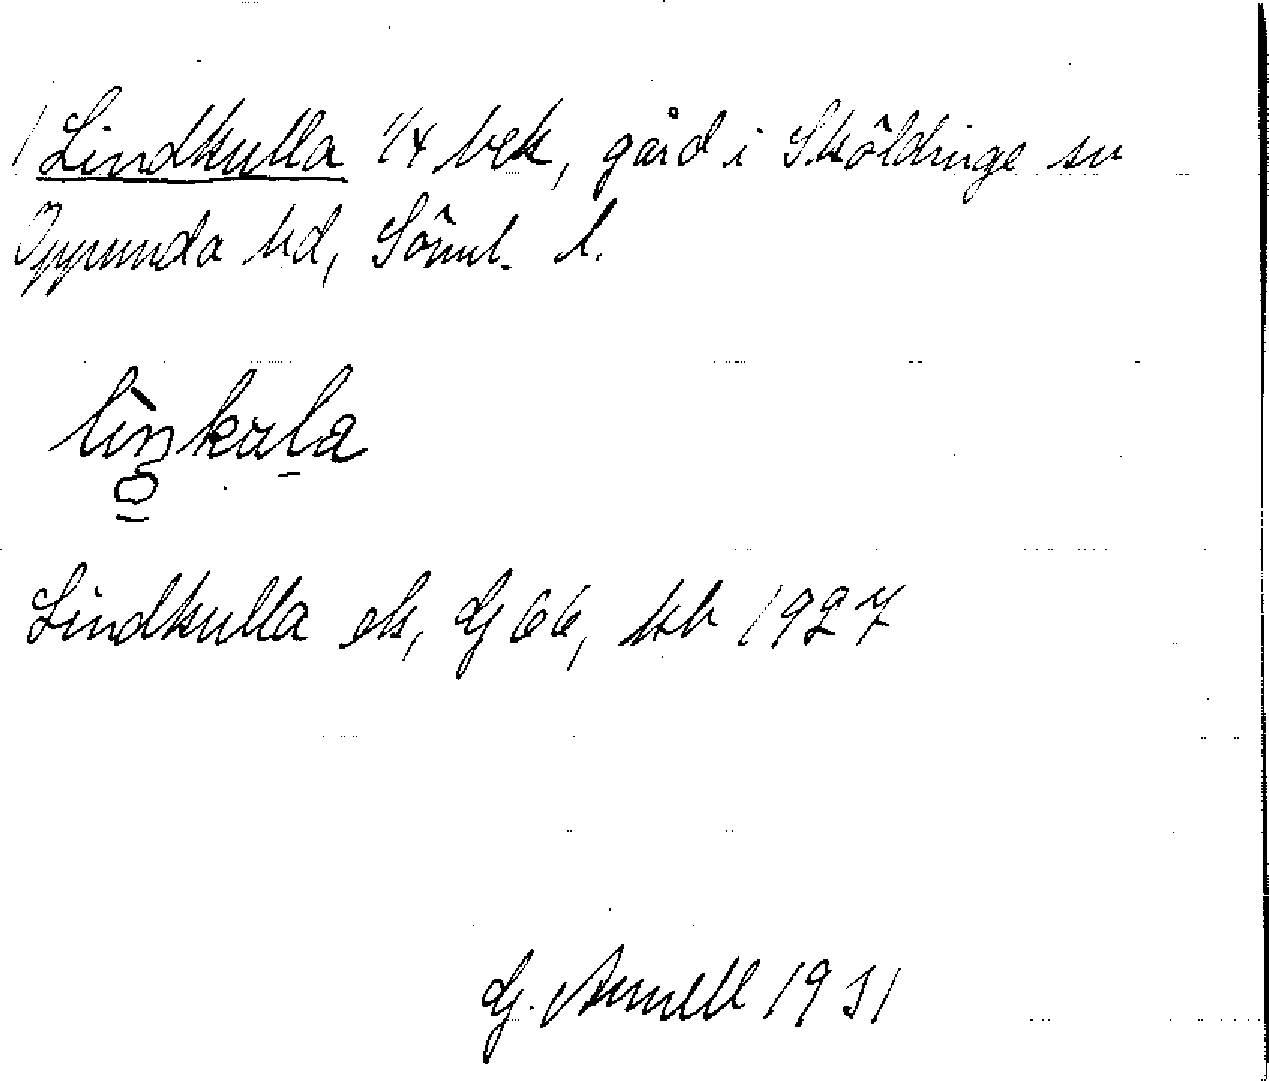 Lindkulla 1/4 bek, gård i Sköldinge sn
Oppunda hd, Söml. l.
Lindkulla ek, G 66, kb 1927
G. Annell 1931